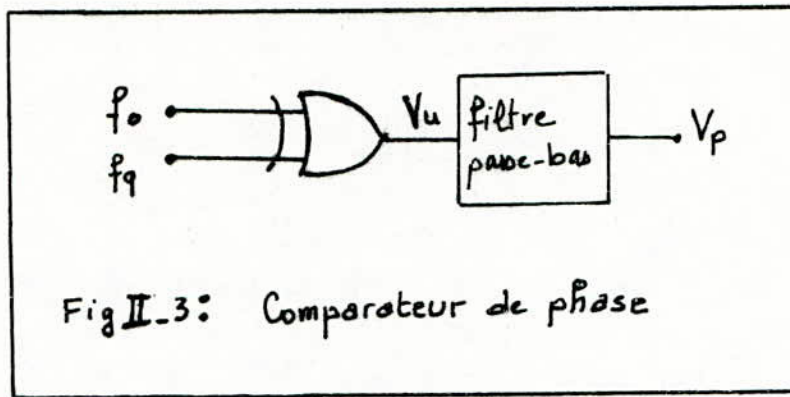 fo
Vu
filtre
passe-bas
Vp
fq
Fig II_3: Comparateur de phase